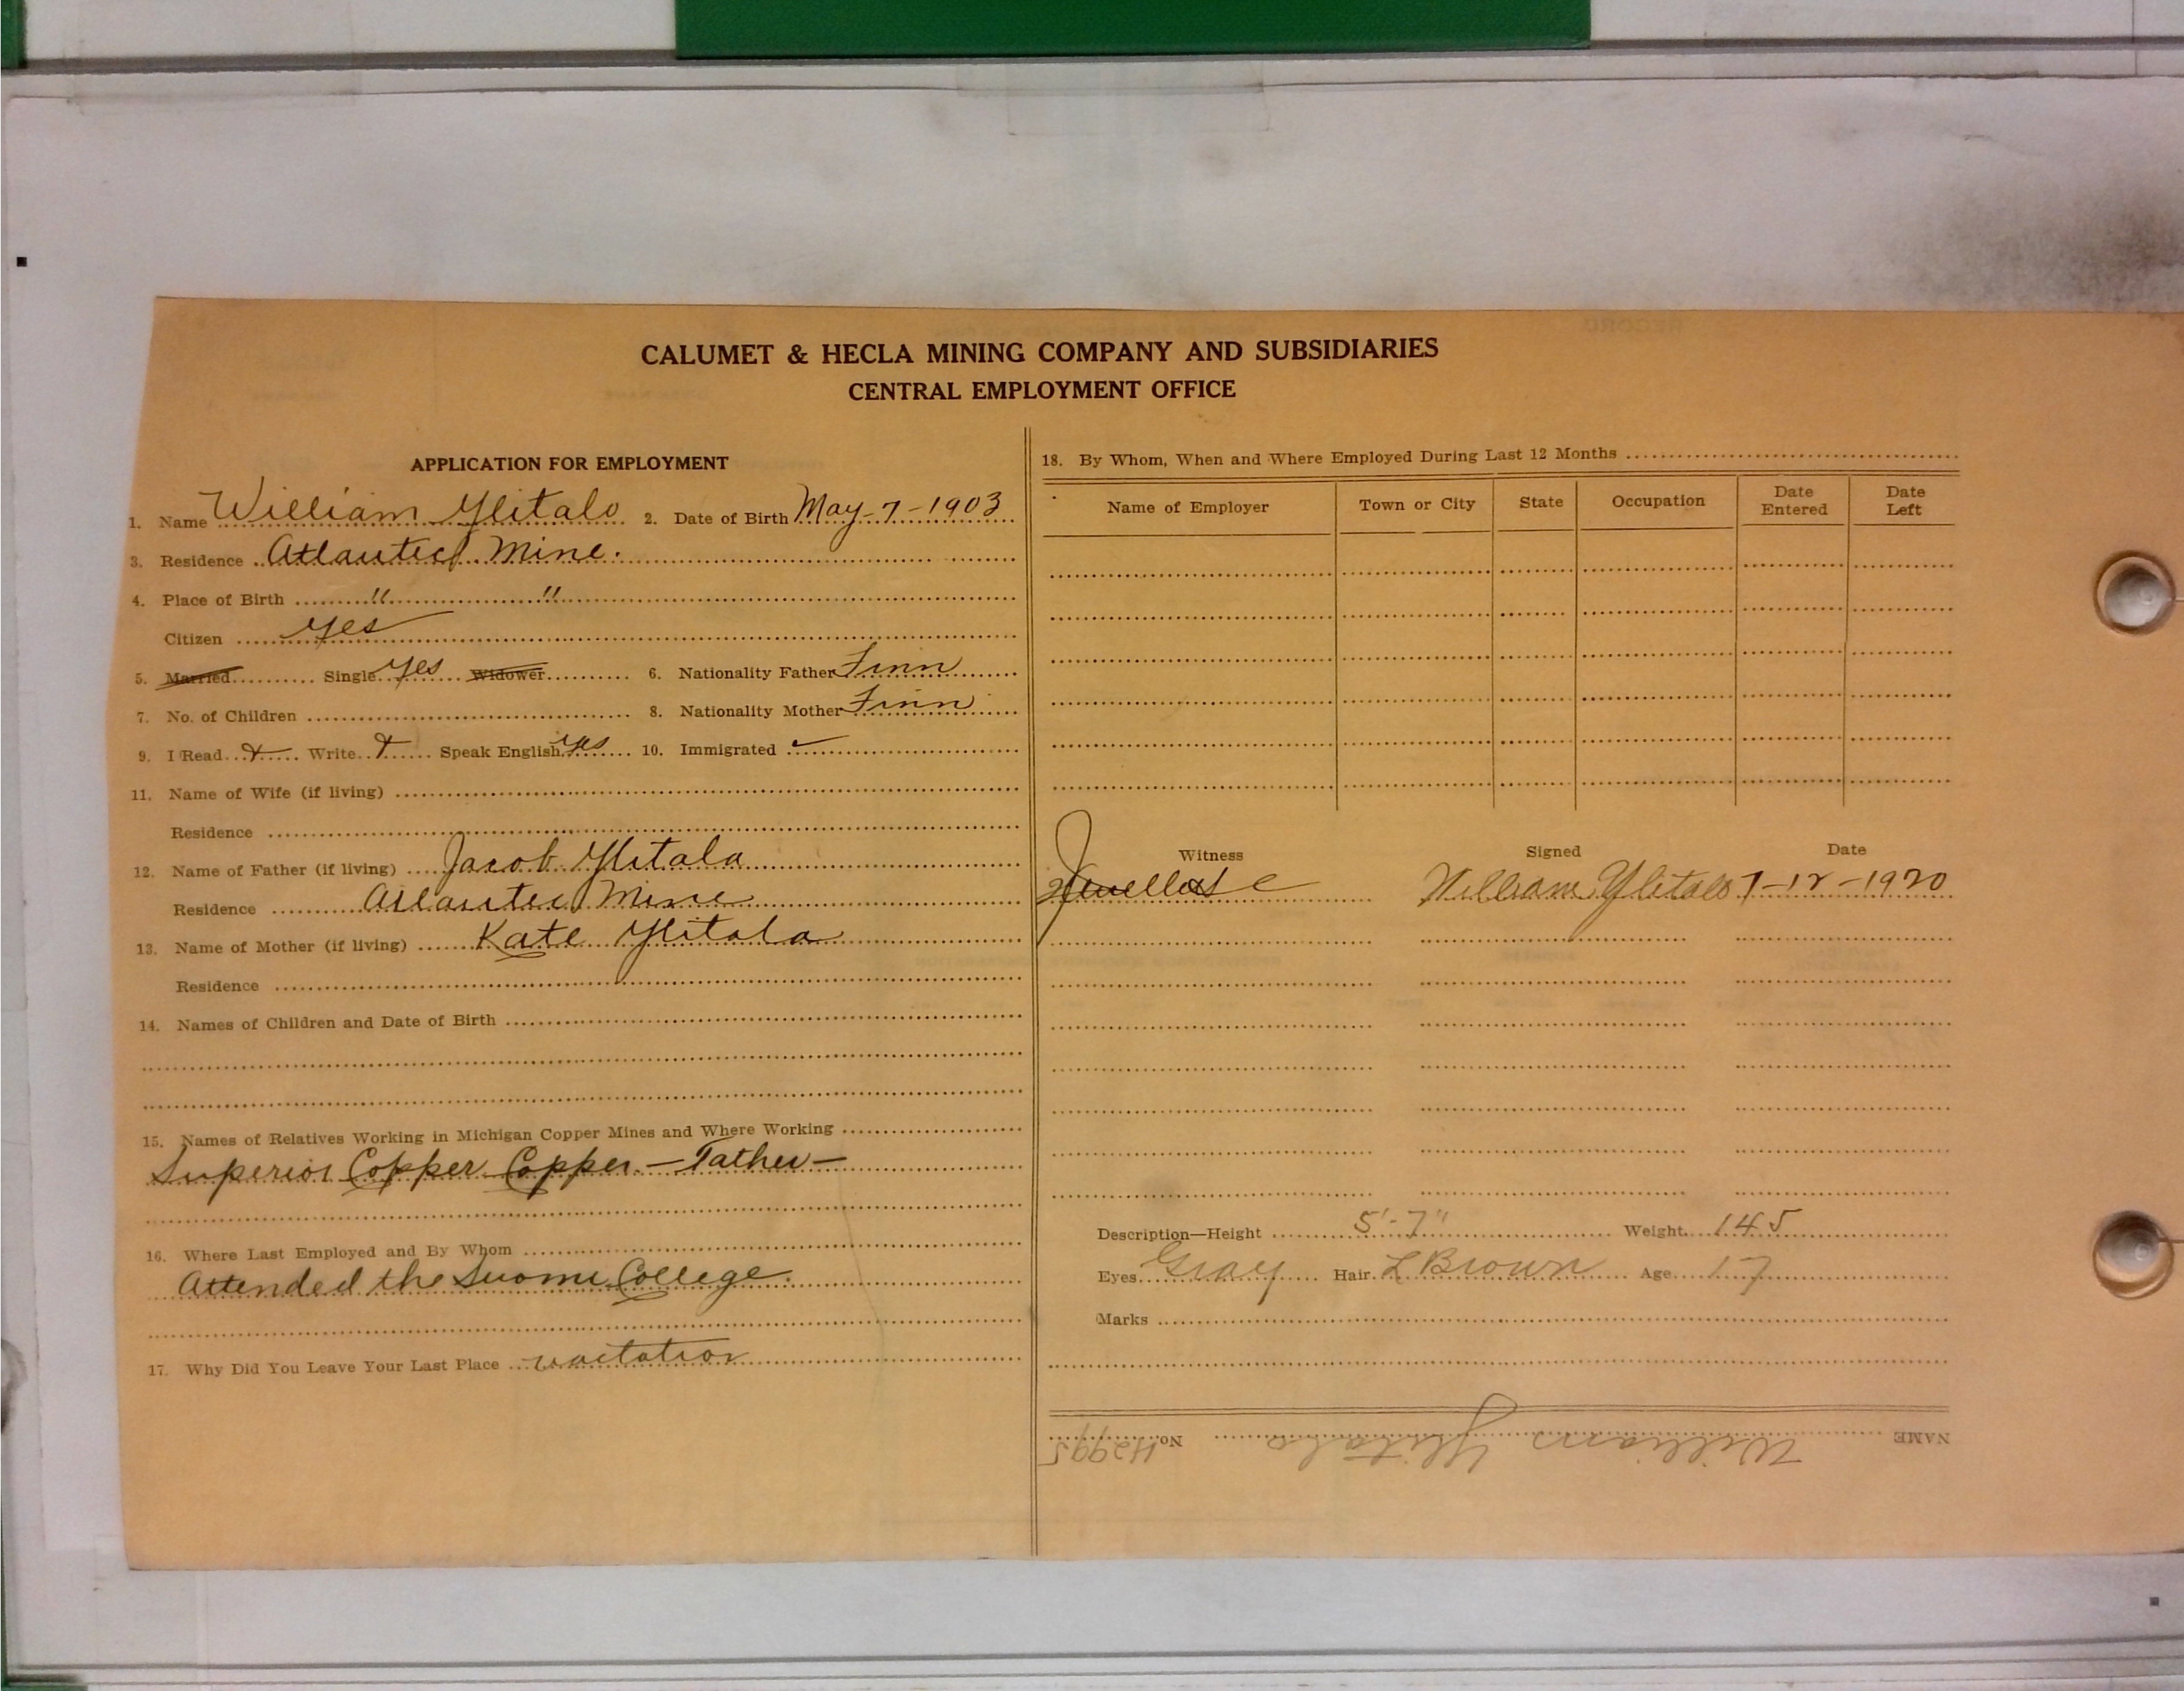 CALUMET & HECLA MINING COMPANY AND SUBSIDIARIES
CENTRAL EMPLOYMENT OFFICE
APPLICATION FOR EMPLOYMENT
1. Name William Ylitalo 2. Date of Birth May-7-1903
3. Residence Atlantic Mine.
4. Place of Birth " "
Citizen yes
5. Married Single yes Widower 6. Nationality Father Finn
7. No. of Children 8. Nationality Mother Finn
9. I Read Write Speak English yes 10. Immigrated
11. Name of Wife (if living)
Residence
12. Name of Father (if living) Jacob Ylitalo
Residence Atlantic Mine
13. Name of Mother (if living) Kate Ylitalo
Residence
14. Names of Children and Date of Birth
15. Names of Relatives Working in Michigan Copper Mines and Where Working
Superior Copper Copper - Father -
16. Where Last Employed and By Whom
Attended the Suomi College.
17. Why Did You Leave Your Last Place
18. By Whom, When and Where Employed During Last 12 Months
Name of Employer Town or City State Occupation Date Entered Date Left
Witness Signed Date
William Ylitalo 7-12-1920
Description—Height 5'-7" Weight 145
Eyes Gray Hair L Brown Age 17
Marks
NAME William Ylitalo No. 42995